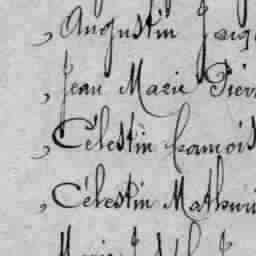 , Augustin Jacq
, Jean Marie Pier
, Célestin François
, Célestin Mathuri
Marie